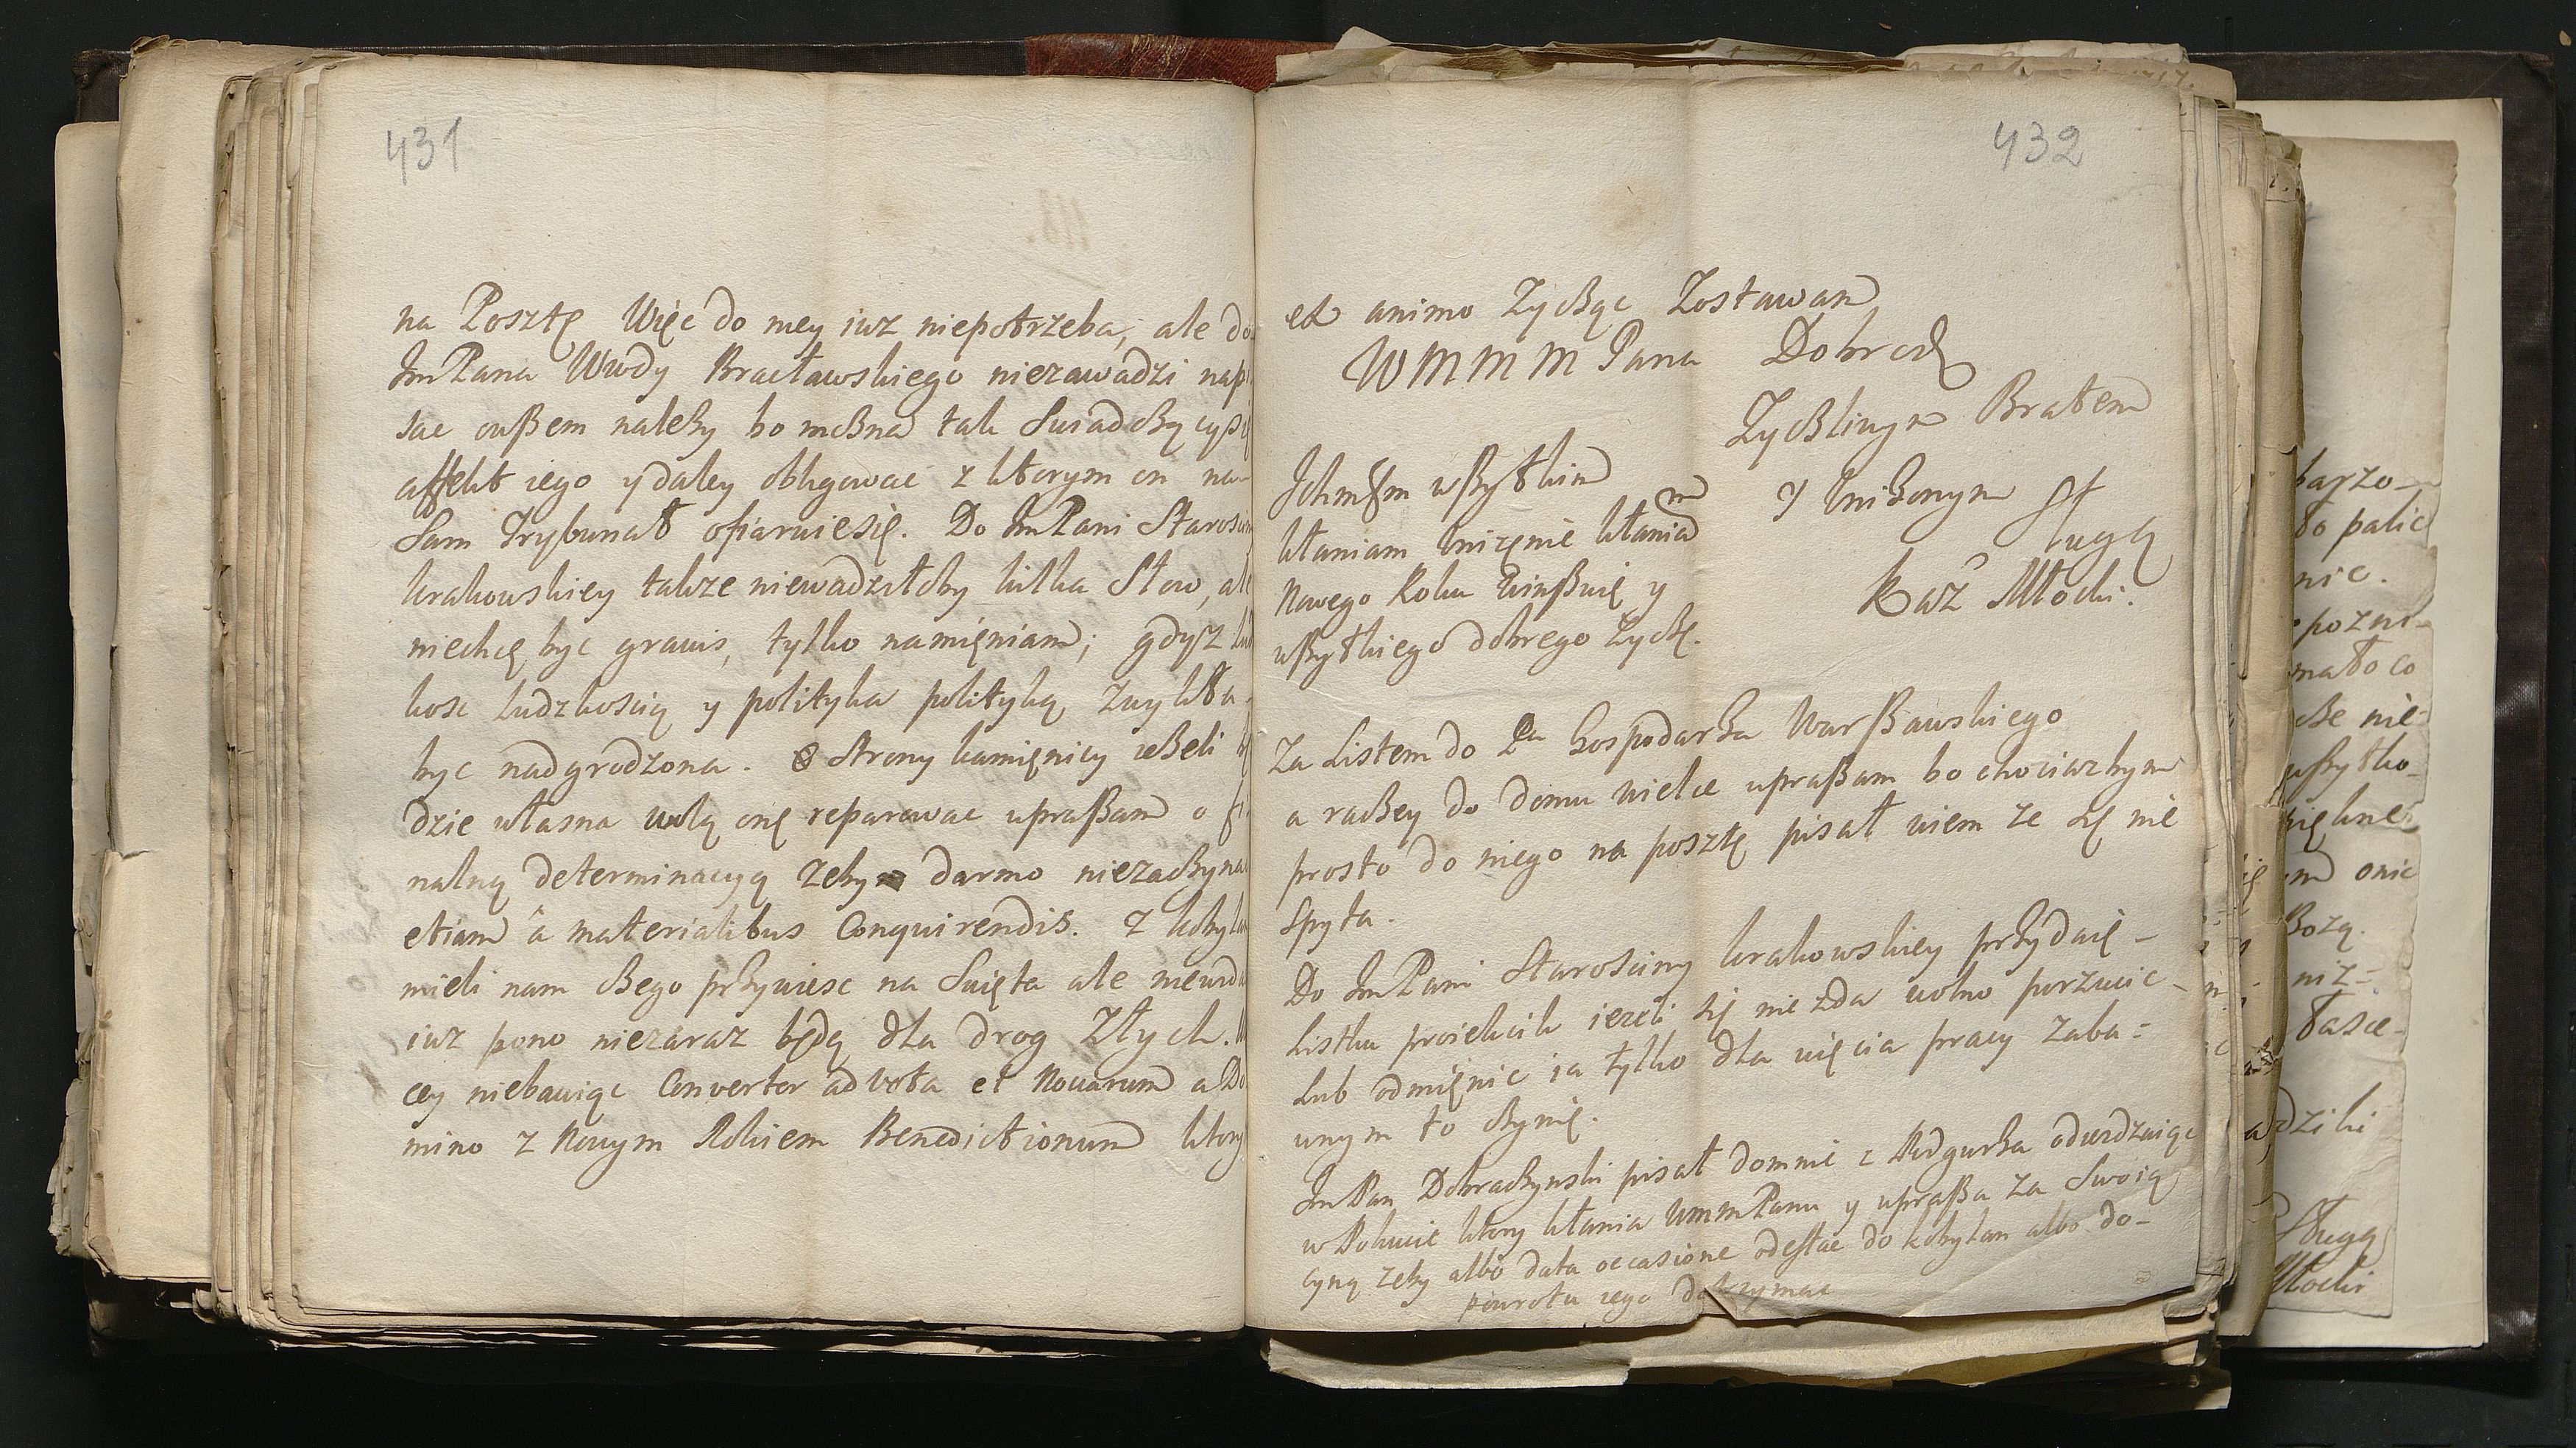 431
na Posztę Więc do niey iuz niepotrzeba, ale do
JmPana Wwdy Bracławskiego niezawadzi napi
sac oußem należy bo można tak Swiadcżący się
affekt iego y daley obligować z ktorym on na
Sam Trybunał ofiaruie się. Do JmPani Starościn
krakowskiey także niewadziłoby kilka Słow, ale
niechcę być grauis, tylko namięniam; gdysz lud
kosc ludzkoscią y polityka polityką zwykła
byc nadgrodzona. O Strony kamięnicy ieżeli bę
dzie własna wolą onę reparowac upraßam o fi
nalną determinacyą zebym darmo niezacżynał
etiam â materialibus Conquirendis. Z kobyłan
mieli nam cżego przywiesc na Swięta ale niewida
iuz pono niezaraz będą dla drog Złych.
cey niebawiąc Convertor ad vota et Nouarum a Do
mino z Nowym Rokiem Benedictionum ktory
432
ex animo Zycżąc Zostawam
WMMM Pana Dobrod
Zycżliwym Bratem
Jchmſm wßytkim
kłaniam Vnizęnie kłaniam
Nowego Roku winßuię y
wßytkiego dobrego życżę.
y Vniżonym sł
ługą
Kaz Młocki.
Za Listem do Pa Gospodarża Warßawskiego
a racżey do domu wielce upraßam bo chociazbym
prosto do niego na posztę pisał wiem ze się nie
spyta.
Do JmPani Starosciny krakowskiey przydaię
Listku proiekcik iezeli się nie zda wolno porzucic
Lub odmięnic ia tylko dla uięcia pracy zaba=
wnym to cżynię.
JmPan Dobracżynski pisał domnie z Podgurża odiezdzaiąc
w Pokucie ktory kłania WmmPanu y upraßa za Swoią
cyną zeby albo data occasione odesłac do kobyłan albo do-
powrotu iego dotrzymac
barzo-
to palic
nic.
pozni-
mało co
cże nie-
wßytko-
nięknei
onic
Bozą.
niz=
łasce-
dziki
Sługą
Młocki